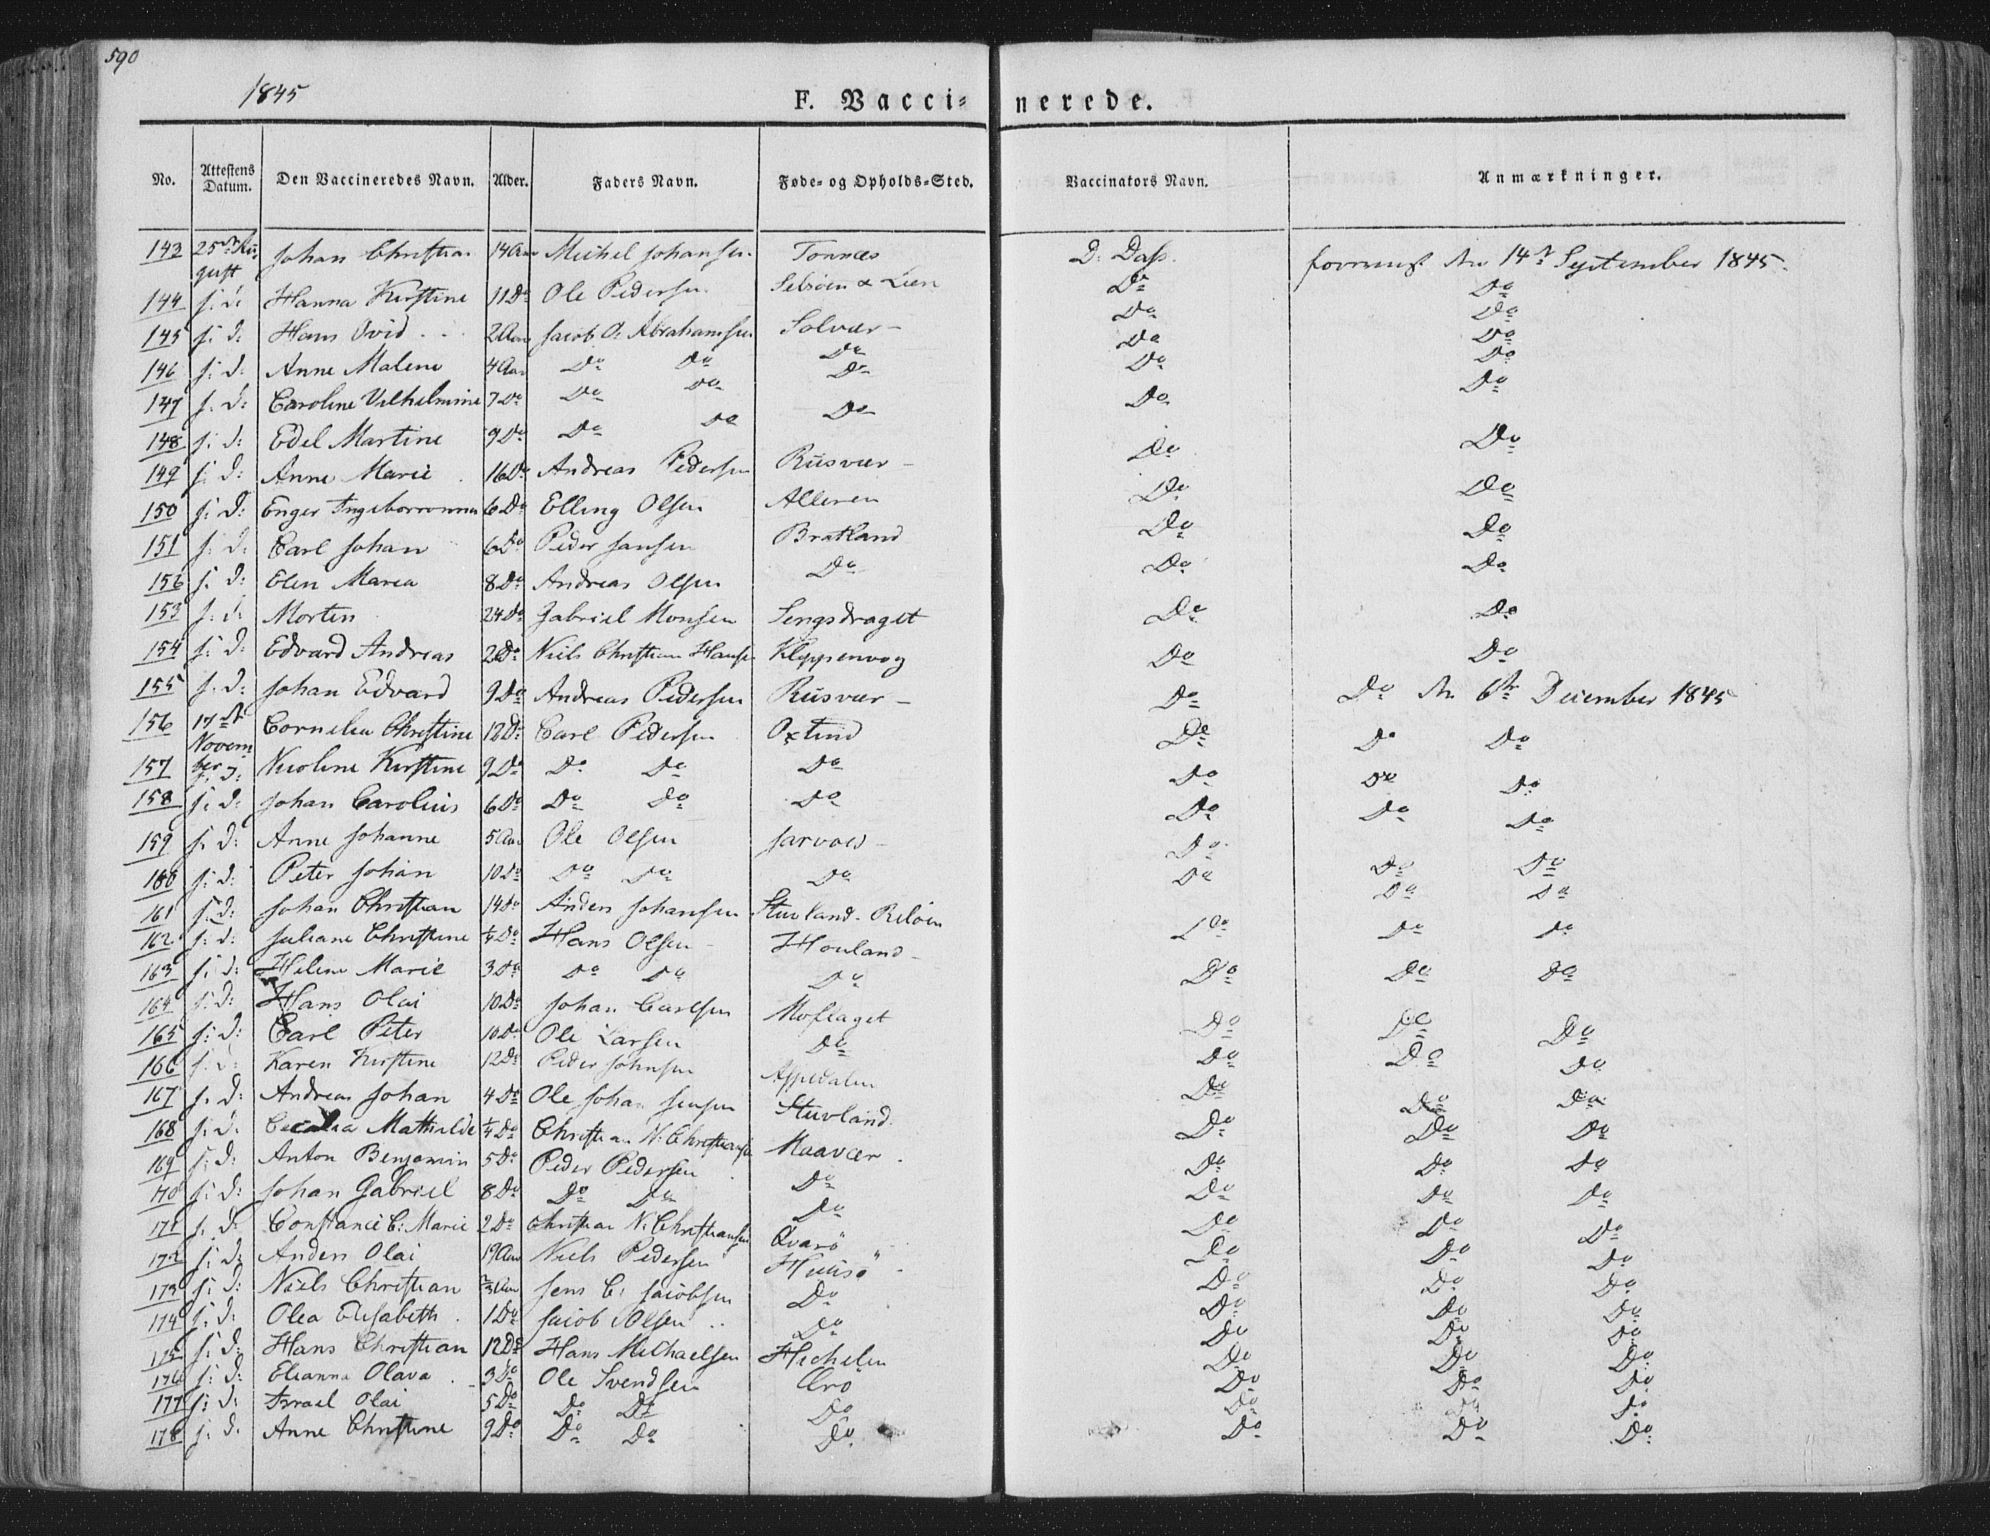 590
1845
F. Vaccinerede.
No. Attestens Datum. Den Vaccineredes Navn. Alder. Faders Navn. Føde- og Opholds-Sted. Vaccinators Navn. Anmærkninger.
143 25de August Johan Christian 14 Aar Michel Johansen Tonnes D. Dass. den 14de September 1845.
144 s: D: Hanna Kirstine 11 Do Ole Pedersen Selsøen Do Do
145 s: D: Hans Ovid 2 Aar Jacob O. Abrahamsen Solvær Do Do
146 s: D: Anne Malene 4 Aar Do Do Do Do Do
147 s: D: Caroline Vilhelmine 7 Do Do Do Do Do Do
148 s: D: Edel Martine 9 Do Do Do Do Do Do
149 s: D: Anne Marie 16 Do Andreas Pedersen Rusvær Do Do
150 s: D: Enger 6 Do Elling Olsen Alleren Do Do
151 s: D: Carl Johan 6 Do Peder Jansen Bratland Do Do
156 s: D: Elen Marea 8 Do Andreas Olsen Do Do Do
153 s: D: Morten 24 Do Gabriel Monsen Sengsdraget Do Do
154 s: D: Edvard Andreas 2 Do Niels Christian Hansen Kloppenvog Do Do
155 s: D: Johan Edvard 9 Do Andreas Pedersen Rusvær Do Do den 6te December 1845
156 17de November Cornelia Christine 12 Do Carl Pedersen Oxtind Do Do Do
157 s: D: Nicoline Kirstine 9 Do Do Do Do Do Do Do
158 s: D: Johan Carolius 6 Do Do Do Do Do Do Do
159 s: D: Anne Johanne 5 Aar Ole Olsen Sarvold Do
160 s: D: Peter Johan 10 Do Do Do Do Do Do Do
161 s: D: Johan Christian 14 Do Anders Johansen Stuvland Reløen Do Do
162 s: D: Juliane Christine 1/4 Do Hans Olsen Houland Do Do Do
163 s: D: Helene Marie 3 Do Do Do Do Do Do Do
164 s: D: Hans Olai 10 Do Johan Carlsen Moflaget
165 s: D: Carl Peter 10 Do Ole Larsen Do Do Do Do
166 s: D: Karen Kirstine 12 Do Peder Johnsen Aspedalen Do Do Do
167 s: D: Andreas Johan 4 Do Ole Johan Jensen Stuvland Do Do Do
168 s: D: Mathilde 1/4 Do Christian N. Christiansen Maavær Do Do Do
169 s: D: Anton Benjamin 5 Do Peder Pedersen Do Do Do Do
170 s: D: Johan Gabriel 8 Do Do Do Do Do Do Do
171 s: D: Constance C: Marie 2 Do Christian N. Christiansen Qvarø Do Do Do
172 s: D: Anders Olai 19 Aar Niels Pedersen Huusø Do Do Do
173 s: D: Niels Christian Aar Jens C: Jacobsen Do Do Do Do
174 s: D: Olea Elisabeth 1 Do Jacob Olsen Do Do Do Do
175 s: D: Hans Christian 12 Do Hans Michaelsen Hichelen Do Do Do
176 s: D: Elianna Olava 3 Do Ole Svendsen Ærø Do Do Do
177 s: D: Israel Olai 5 Do Do Do Do Do Do Do
178 s: D: Anne Christine 9 Do Do Do Do Do Do Do